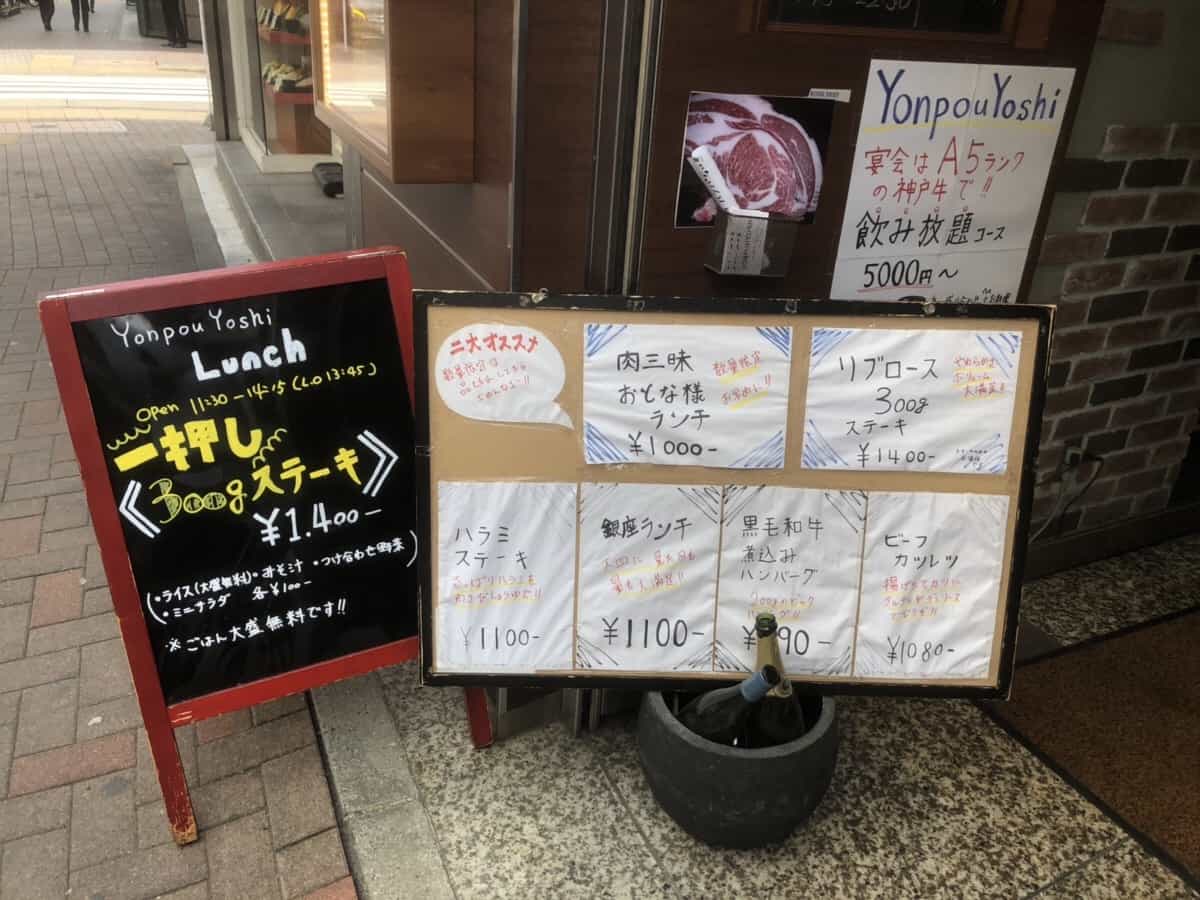 Yonpou Yoshi
Lunch
Open 11:30-14:15 (L.O 13:45)
一押し
300gステーキ
¥1.400-
・ライス(大盛無料)・みそ汁 ・つけ合わせ野菜
・ミニサラダ 各¥100-
※ごはん大盛無料です!!
二大オススメ
数量限定
肉三昧
おとな様
ランチ
¥1000-
数量限定
お早めに!!
リブロース
300g
ステーキ
¥1400-
やわらかさ
ボリューム
大満足!!
ハラミ
ステーキ
¥1100-
銀座ランチ
¥1100-
黒毛和牛
煮込み
ハンバーグ
200gの
90-
ビーフ
カツレツ
¥1080-
YonpouYoshi
宴会はA5ランク
の神戸牛で!!
飲み放題コース
5000円～